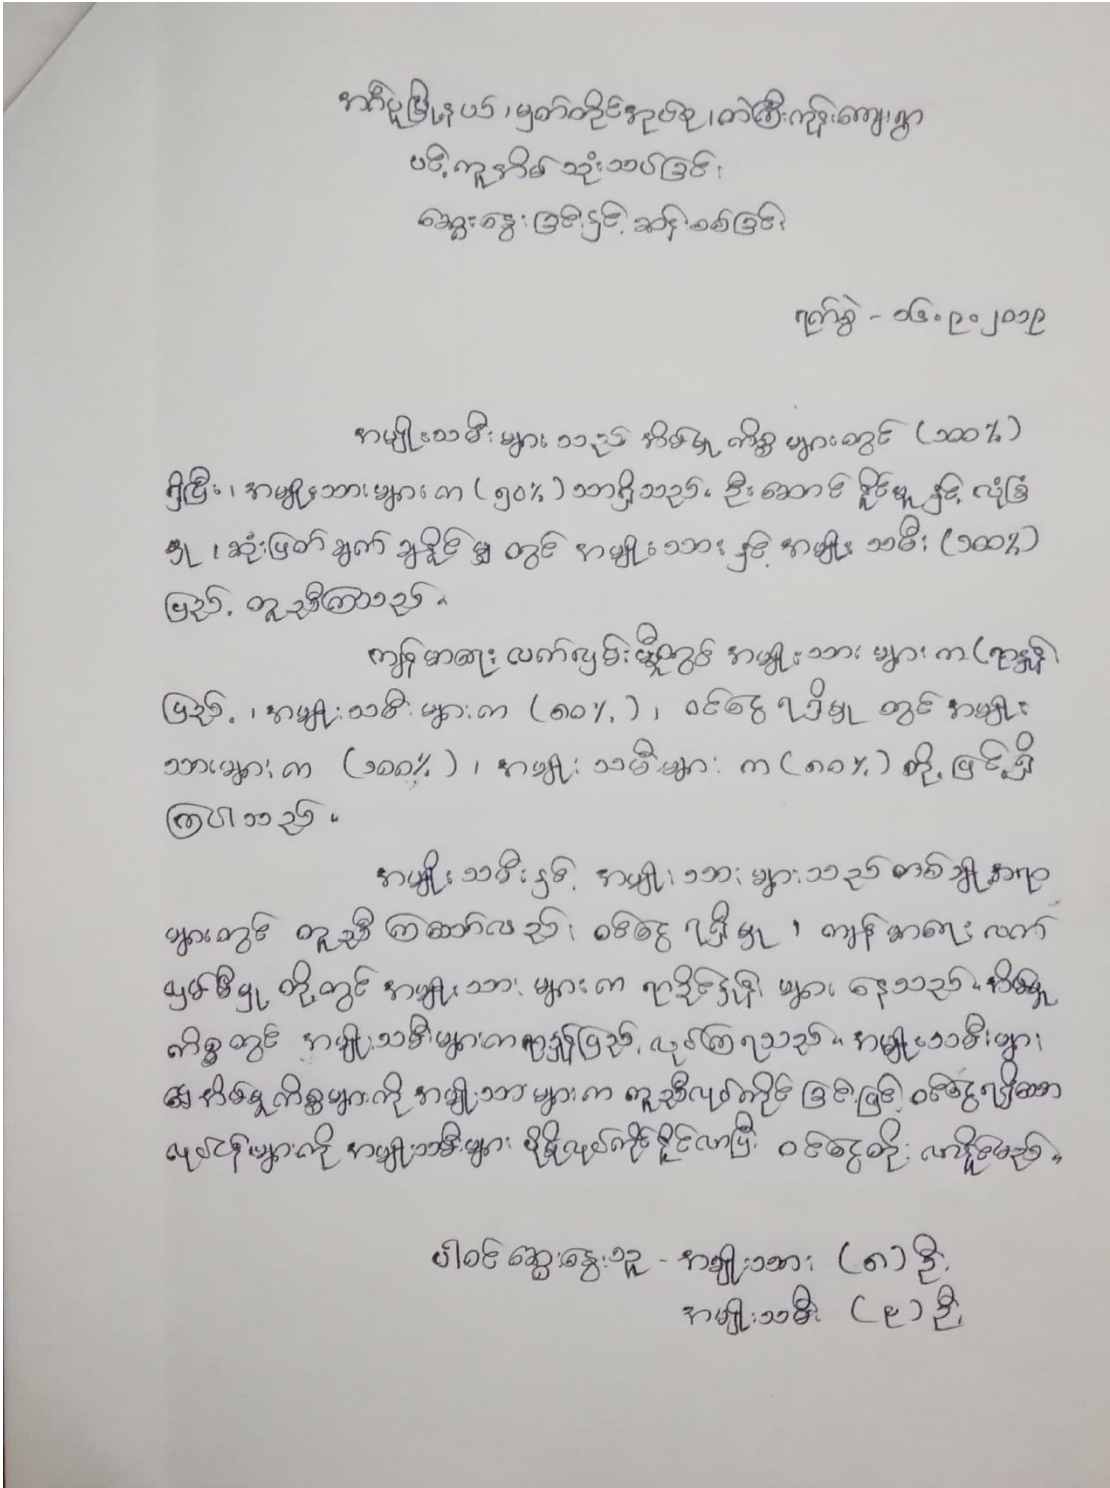 အင်္ဂပူမြို့နယ်၊ မှတ်တိုင်အုပ်စု၊ တဲကြီးကုန်းကျေးရွာ
ပင့်ကူအိမ် သုံးသပ်ခြင်း
ဆွေးနွေးခြင်းနှင့် ဆန်းစစ်ခြင်း
ရက်စွဲ - ၁၆.၉.၂၀၁၉
အမျိုးသမီးများသည် အိမ်မှုကိစ္စများတွင် (၁၀၀%)
ရှိပြီး၊ အမျိုးသားများက (၅၀%) သာရှိသည်။ ဦးဆောင်နိုင်မှုနှင့် လုံခြုံ
မှု၊ ဆုံးဖြတ်ချက်ချနိုင်မှုတွင် အမျိုးသားနှင့် အမျိုးသမီး (၁၀၀%)
ဖြည့် တူညီကြသည်။
ကျန်းမာရေးလက်လှမ်းမှီမှုတွင် အမျိုးသားများက (ရာနှုန်း
ပြည့်)၊ အမျိုးသမီးများက (၈၀%)၊ ဝင်ငွေရရှိမှုတွင် အမျိုး
သားများက (၁၀၀%)၊ အမျိုးသမီးများက (၈၀%) တို့ဖြင့်ရှိ
ကြပါသည်။
အမျိုးသမီးနှင့် အမျိုးသားများသည် တစ်ချို့အရာ
များတွင် တူညီကြသော်လည်း ဝင်ငွေရရှိမှု၊ ကျန်းမာရေးလက်
လှမ်းမီမှုတို့တွင် အမျိုးသားများက ရာခိုင်နှုန်းများနေသည်။ အိမ်မှု
ကိစ္စတွင် အမျိုးသမီးများကရာနှုန်းပြည့်လုပ်ကြရသည်။ အမျိုးသမီးများ
၏ အိမ်မှုကိစ္စများကို အမျိုးသားများက ကူညီလုပ်ကိုင်ခြင်းဖြင့် ဝင်ငွေရရှိသော
လုပ်ငန်းများကို အမျိုးသမီးများ ပိုမိုလုပ်ကိုင်နိုင်လာပြီး ဝင်ငွေတိုးလာနိုင်မည်။
ပါဝင်ဆွေးနွေးသူ - အမျိုးသား (၈) ဦး
အမျိုးသမီး (၉) ဦး